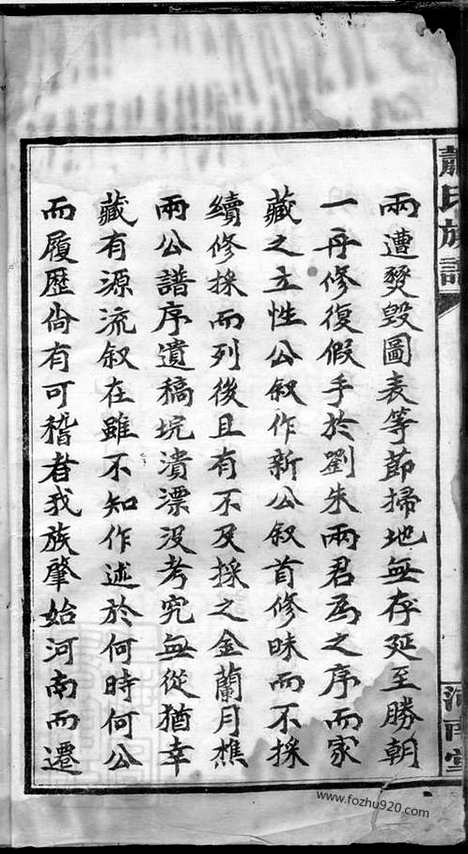 蕭氏族譜
兩遭燹毀圖表等節掃地無存延至勝朝
一再修復假手於劉朱兩君爲之序而家
藏之立性公叙作新公叙首修昧而不採
續修採而列後且有不及採之金蘭月樵
兩公譜序遺稿坑潰漂沒考究無從猶幸
藏有源流叙在雖不知作述於何時何公
而履歷尙有可稽者我族肇始河南而遷
河南堂
www.fozhu920.com